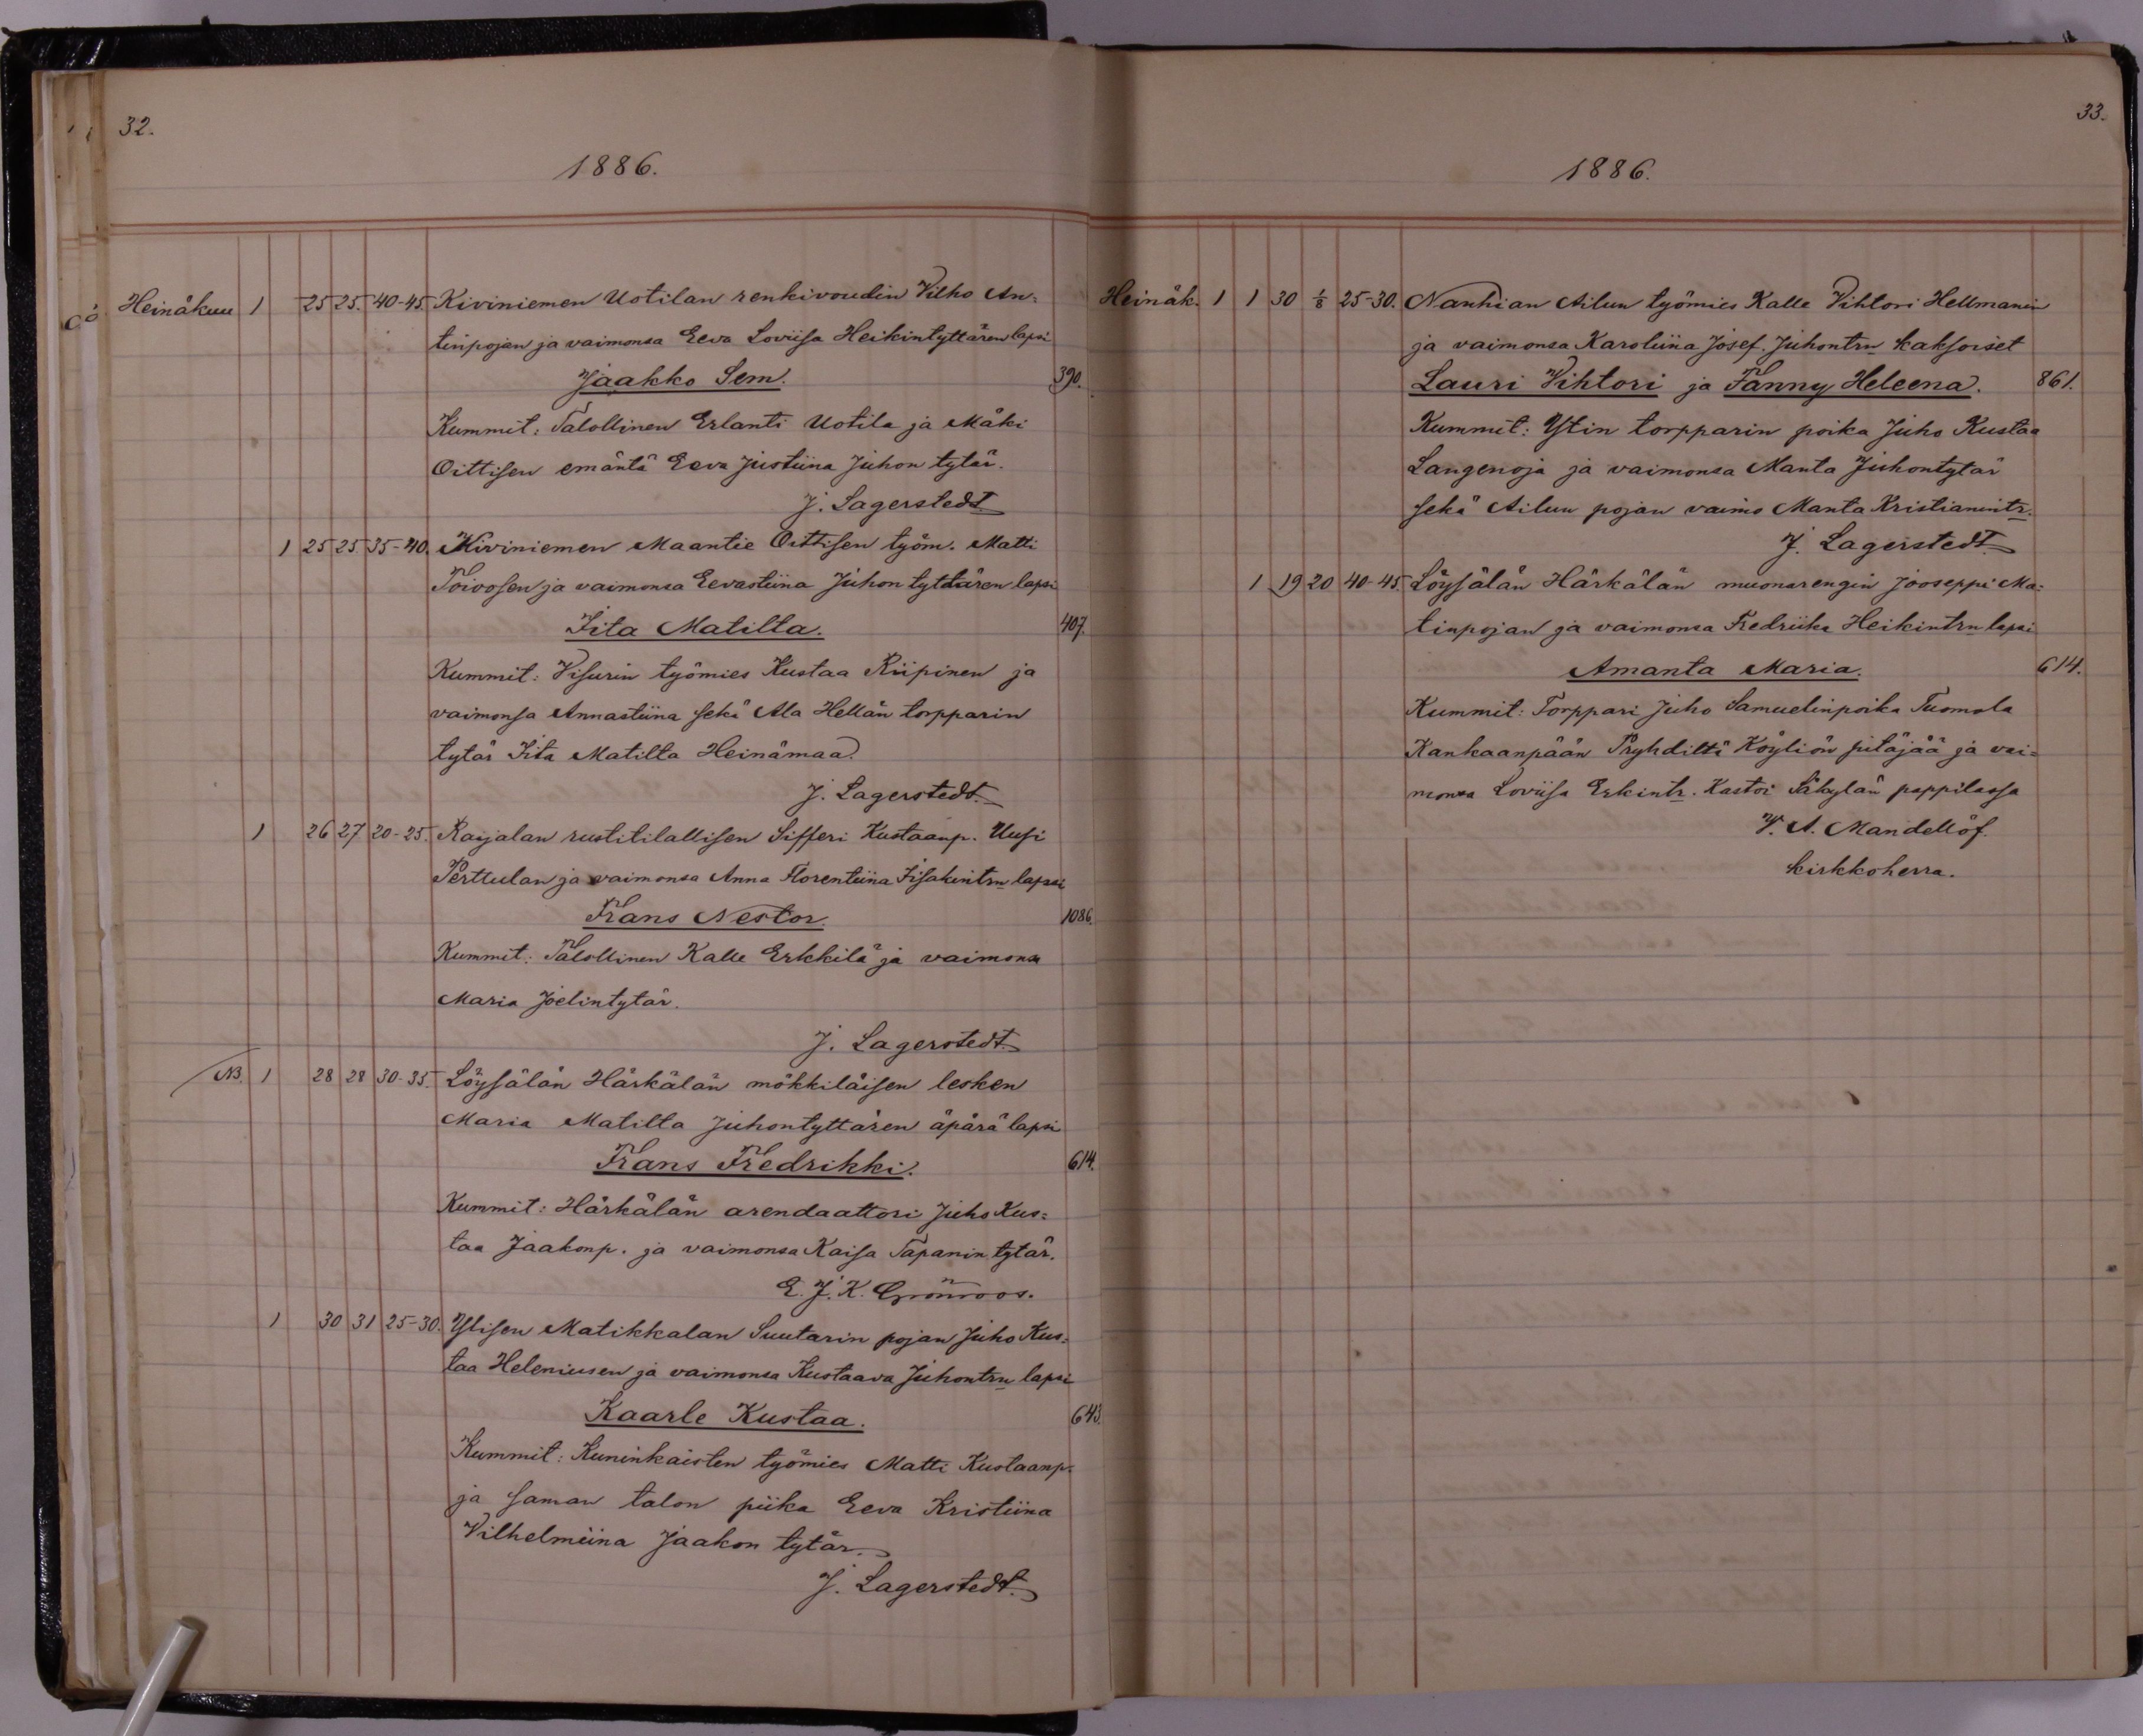 32.
1886.
Heinäkuu 1 25 25. 40-45. Kiviniemen Uotilan renkivoudin Vilho An=
tinpojan ja vaimonsa Eeva Loviisa Heikintyttären lapsi
Jaakko Sem. 390.
Kummit: Talollinen Erlanti Uotila ja Mäki
Oittisen emäntä Eeva Justiina Juhon tytär.
J. Lagerstedt
1 25 25 35-40. Kiviniemen Maantie Oittisen työm. Matti
Toivosen ja vaimonsa Eevastiina Juhon tyttären lapsi
Iita Matilta. 407.
Kummit: Visurin työmies Kustaa Riipinen ja
vaimonsa Annastiina sekä Ala Hellän torpparin
tytär Iita Matilta Heinämaa.
J. Lagerstedt.
1 26 27 20-25. Raijalan rustitilallisen Sifferi Kustaanp. Uusi
Perttulan ja vaimonsa Anna Florentiina Iisakintrn lapsi
Frans Nestor. 1086.
Kummit: Talollinen Kalle Erkkilä ja vaimonsa
Maria Joelintytär.
J. Lagerstedt.
NB. 1 28 28 30-35. Löysälän Härkälän mökkiläisen lesken
Maria Matilta Juhontyttären äpärä lapsi
Frans Fredrikki. 614.
Kummit: Härkälän arendaattori Juho Kus=
taa Jaakonp. ja vaimonsa Kaisa Tapanin tytär.
E. J. K. Grönroos.
1 30 31 25-30. Ylisen Matikkalan Suutarin pojan Juho Kus=
taa Heleniusen ja vaimonsa Kustaava Juhontrn lapsi
Kaarle Kustaa. 643.
Kummit: Kuninkaisten työmies Matti Kustaanp.
ja saman talon piika Eeva Kristiina
Vilhelmiina Jaakon tytär.
J. Lagerstedt.
33.
1886.
Heinäk. 1 1 30 1/8 25-30. Nanhian Ailun työmies Kalle Vihtori Hellmanin
ja vaimonsa Karoliina Josef. Juhontrn kaksoiset
Lauri Vihtori ja Fanny Heleena. 861.
Kummit: Ytin torpparin poika Juho Kustaa
Langenoja ja vaimonsa Manta Juhontytär
sekä Ailun pojan vaimo Manta Kristianintr.
J. Lagerstedt.
1 19 20 40-45. Löysälän Härkälän muonarengin Jooseppi Ma=
tinpojan ja vaimonsa Fredriika Heikintrn lapsi
Amanta Maria. 614.
Kummit: Torppari Juho Samuelinpoika Tuomola
Kankaanpään Pryhdiltä Köyliön pitäjää ja vai=
monsa Loviisa Erkintr. Kastoi Säkylän pappilassa
V. A. Mandellöf.
kirkkoherra.